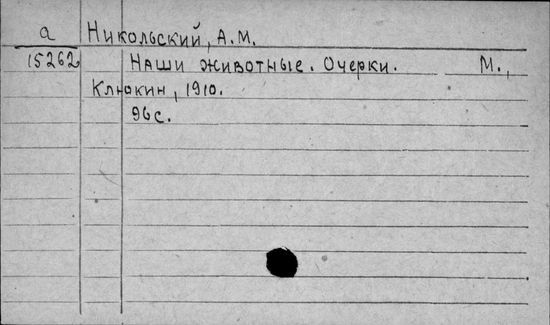 а Никольский, А.М.
15262 Наши животные. Очерки. М.,
Клюкин, 1910.
96с.